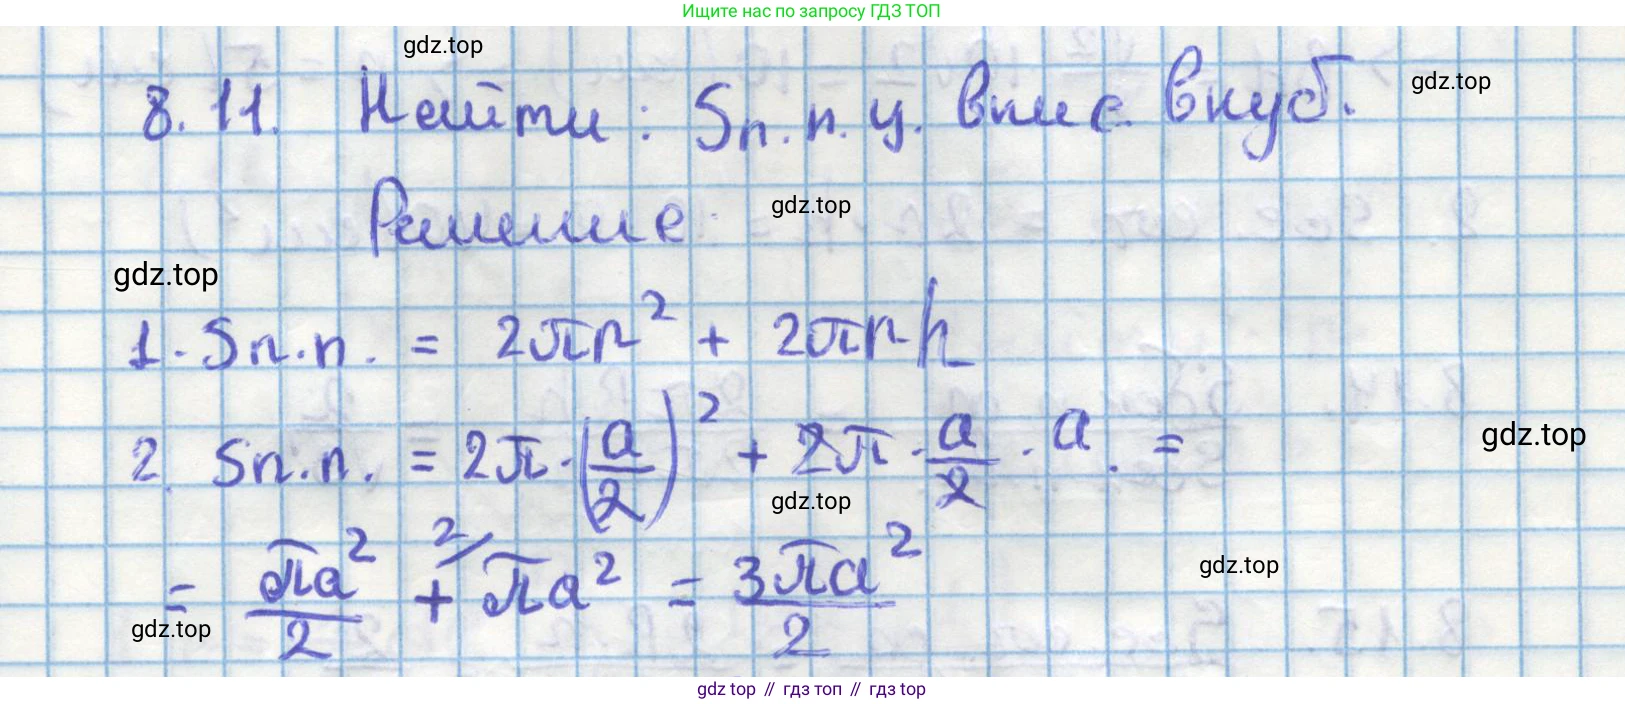 Ищите нас по запросу ГДЗ ТОП
gdz.top
gdz.top
8.11. Найти: Sп.п.ц. впис. в куб.
Решение:
gdz.top
gdz.top
1. Sп.п. = 2πr² + 2πrh
2. Sп.п. = 2π·(a/2)² + 2π·a/2·a. =
gdz.top
gdz.top
= πa²/2 + ²/πa² = 3πa²/2
gdz.top
gdz.top
gdz top // гдз топ // гдз top